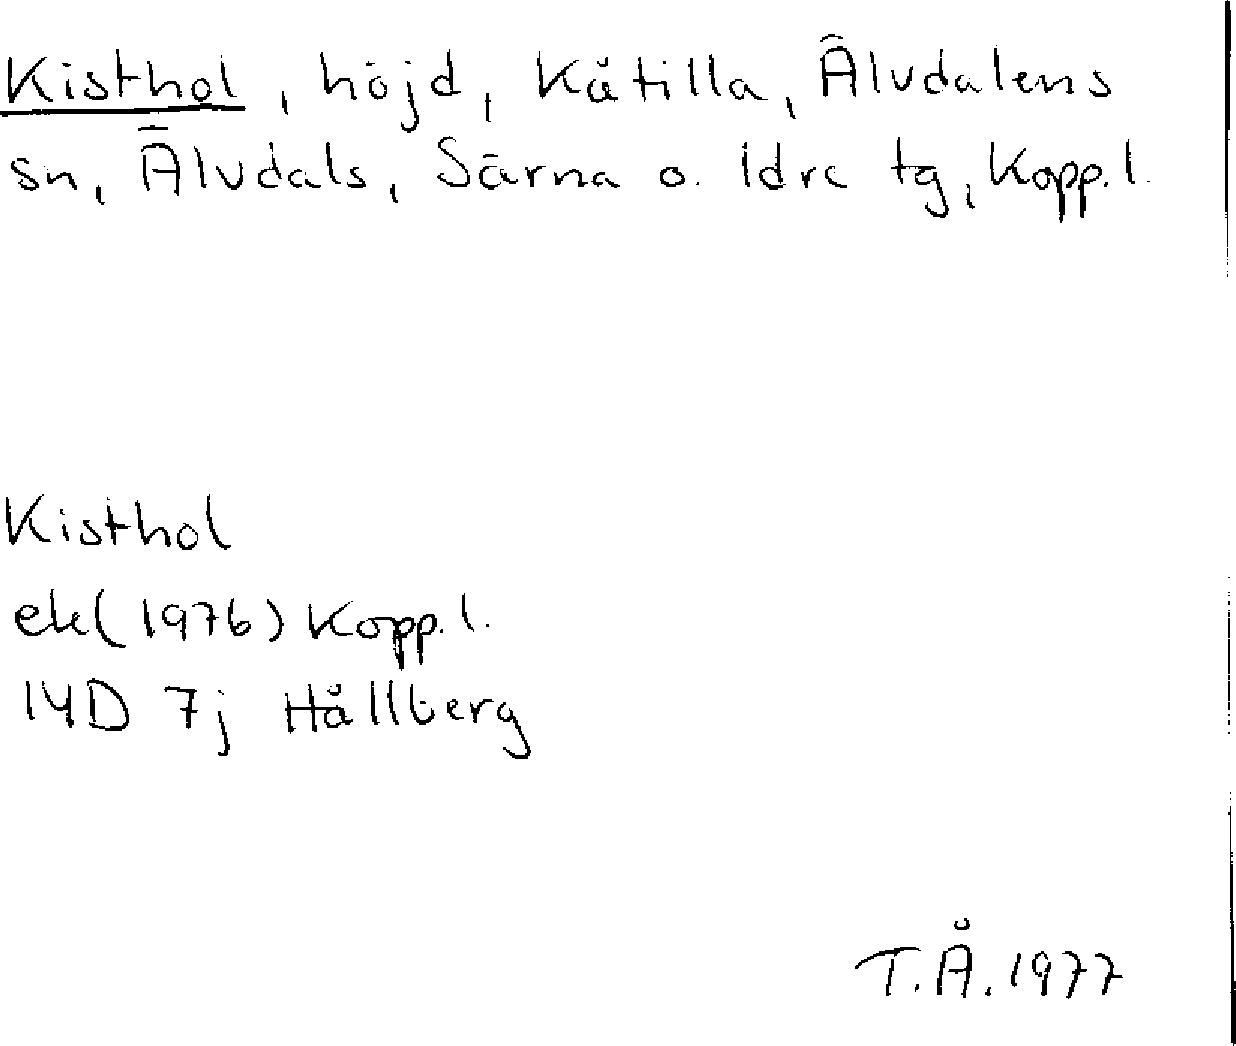 Kisthol, höjd, Kåtilla, Älvdalens
sn, Älvdals, Särna o. Idre tg, Kopp. l.
Kisthol
ek (1976) Kopp. l.
14D 7j Hållberg
T.Å. 1977